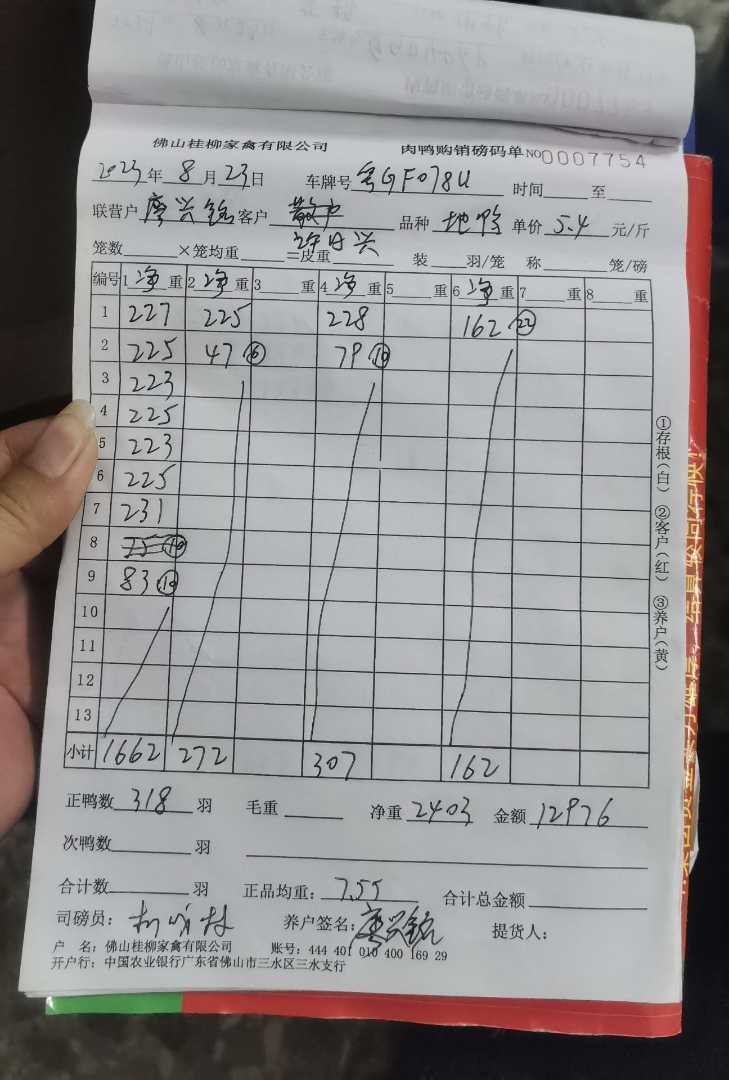 佛山桂柳家禽有限公司 肉鸭购销磅码单 NO0007754
2023年8月23日 车牌号 粤GF078U 时间 至
联营户 廖兴铭 客户 散户 品种 地鸭 单价 5.4 元/斤
许日兴
笼数 ×笼均重 =皮重 装 羽/笼 称 笼/磅
编号 1 净 重 2 净 重 3 重 4 净 重 5 重 6 净 重 7 重 8 重
1 227 225 228 162 22
2 225 47 6 79 10
3 223
4 225
5 223
6 225
7 231
8
9 83
10
11
12
13
小计 1662 272 307 162
正鸭数 318 羽 毛重 净重 2403 金额 12976
次鸭数 羽
合计数 羽 正品均重: 7.55 合计总金额
司磅员: 养户签名: 廖兴铭 提货人:
户 名: 佛山桂柳家禽有限公司 账号: 444 401 010 400 169 29
开户行: 中国农业银行广东省佛山市三水区三水支行
①存根(白) ②客户(红) ③养户(黄)